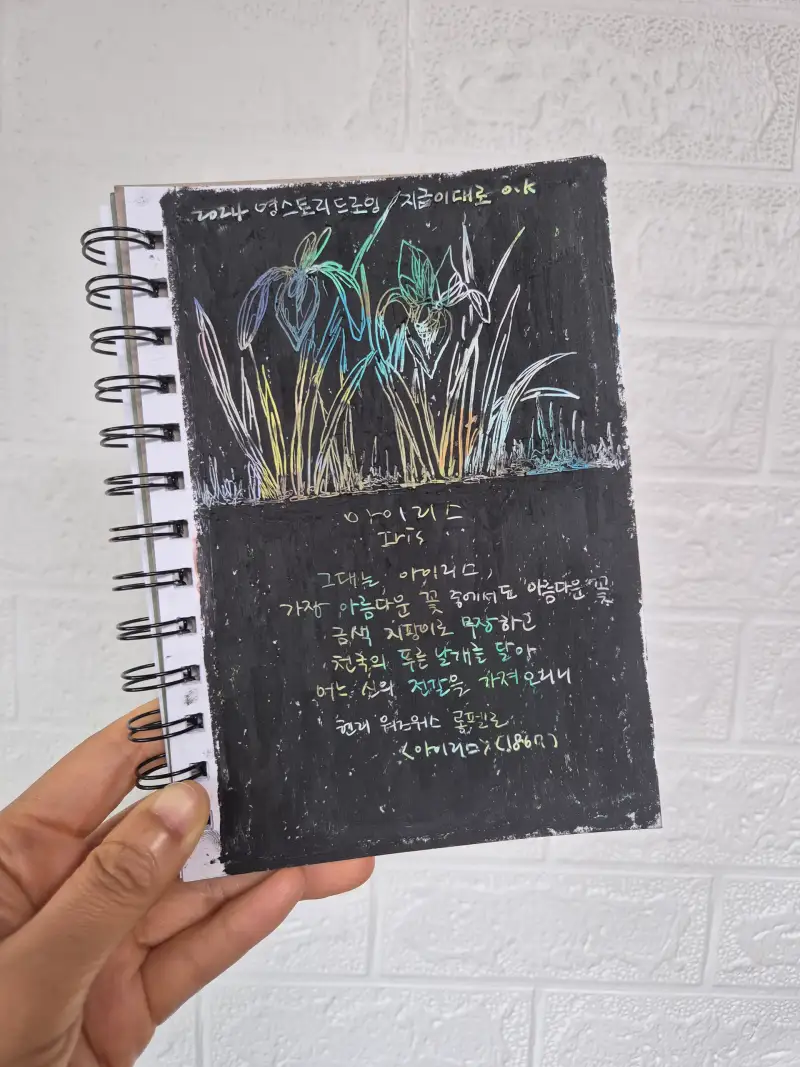 2024 영스토리드로잉 / 지금이대로 O.K
아이리스
Iris
그대는, 아이리스,
가장 아름다운 꽃 중에서도 아름다운 꽃
금색 지팡이로 무장하고
천국의 푸른 날개를 달아
어느 신의 전갈을 가져오리니
헨리 워즈워스 롱펠로
<아이리스>(1867)